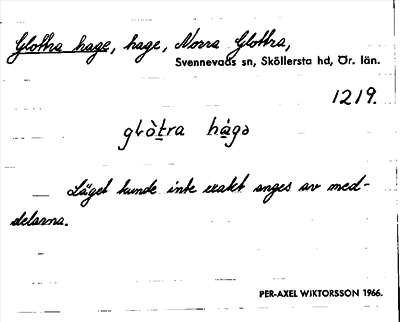 Glottra hage, hage, Norra Glottra,
Svennevads sn, Sköllersta hd, Ör. län.
1219.
glòt̠ra hága
Läget kunde inte exakt anges av med-
delarna.
PER-AXEL WIKTORSSON 1966.